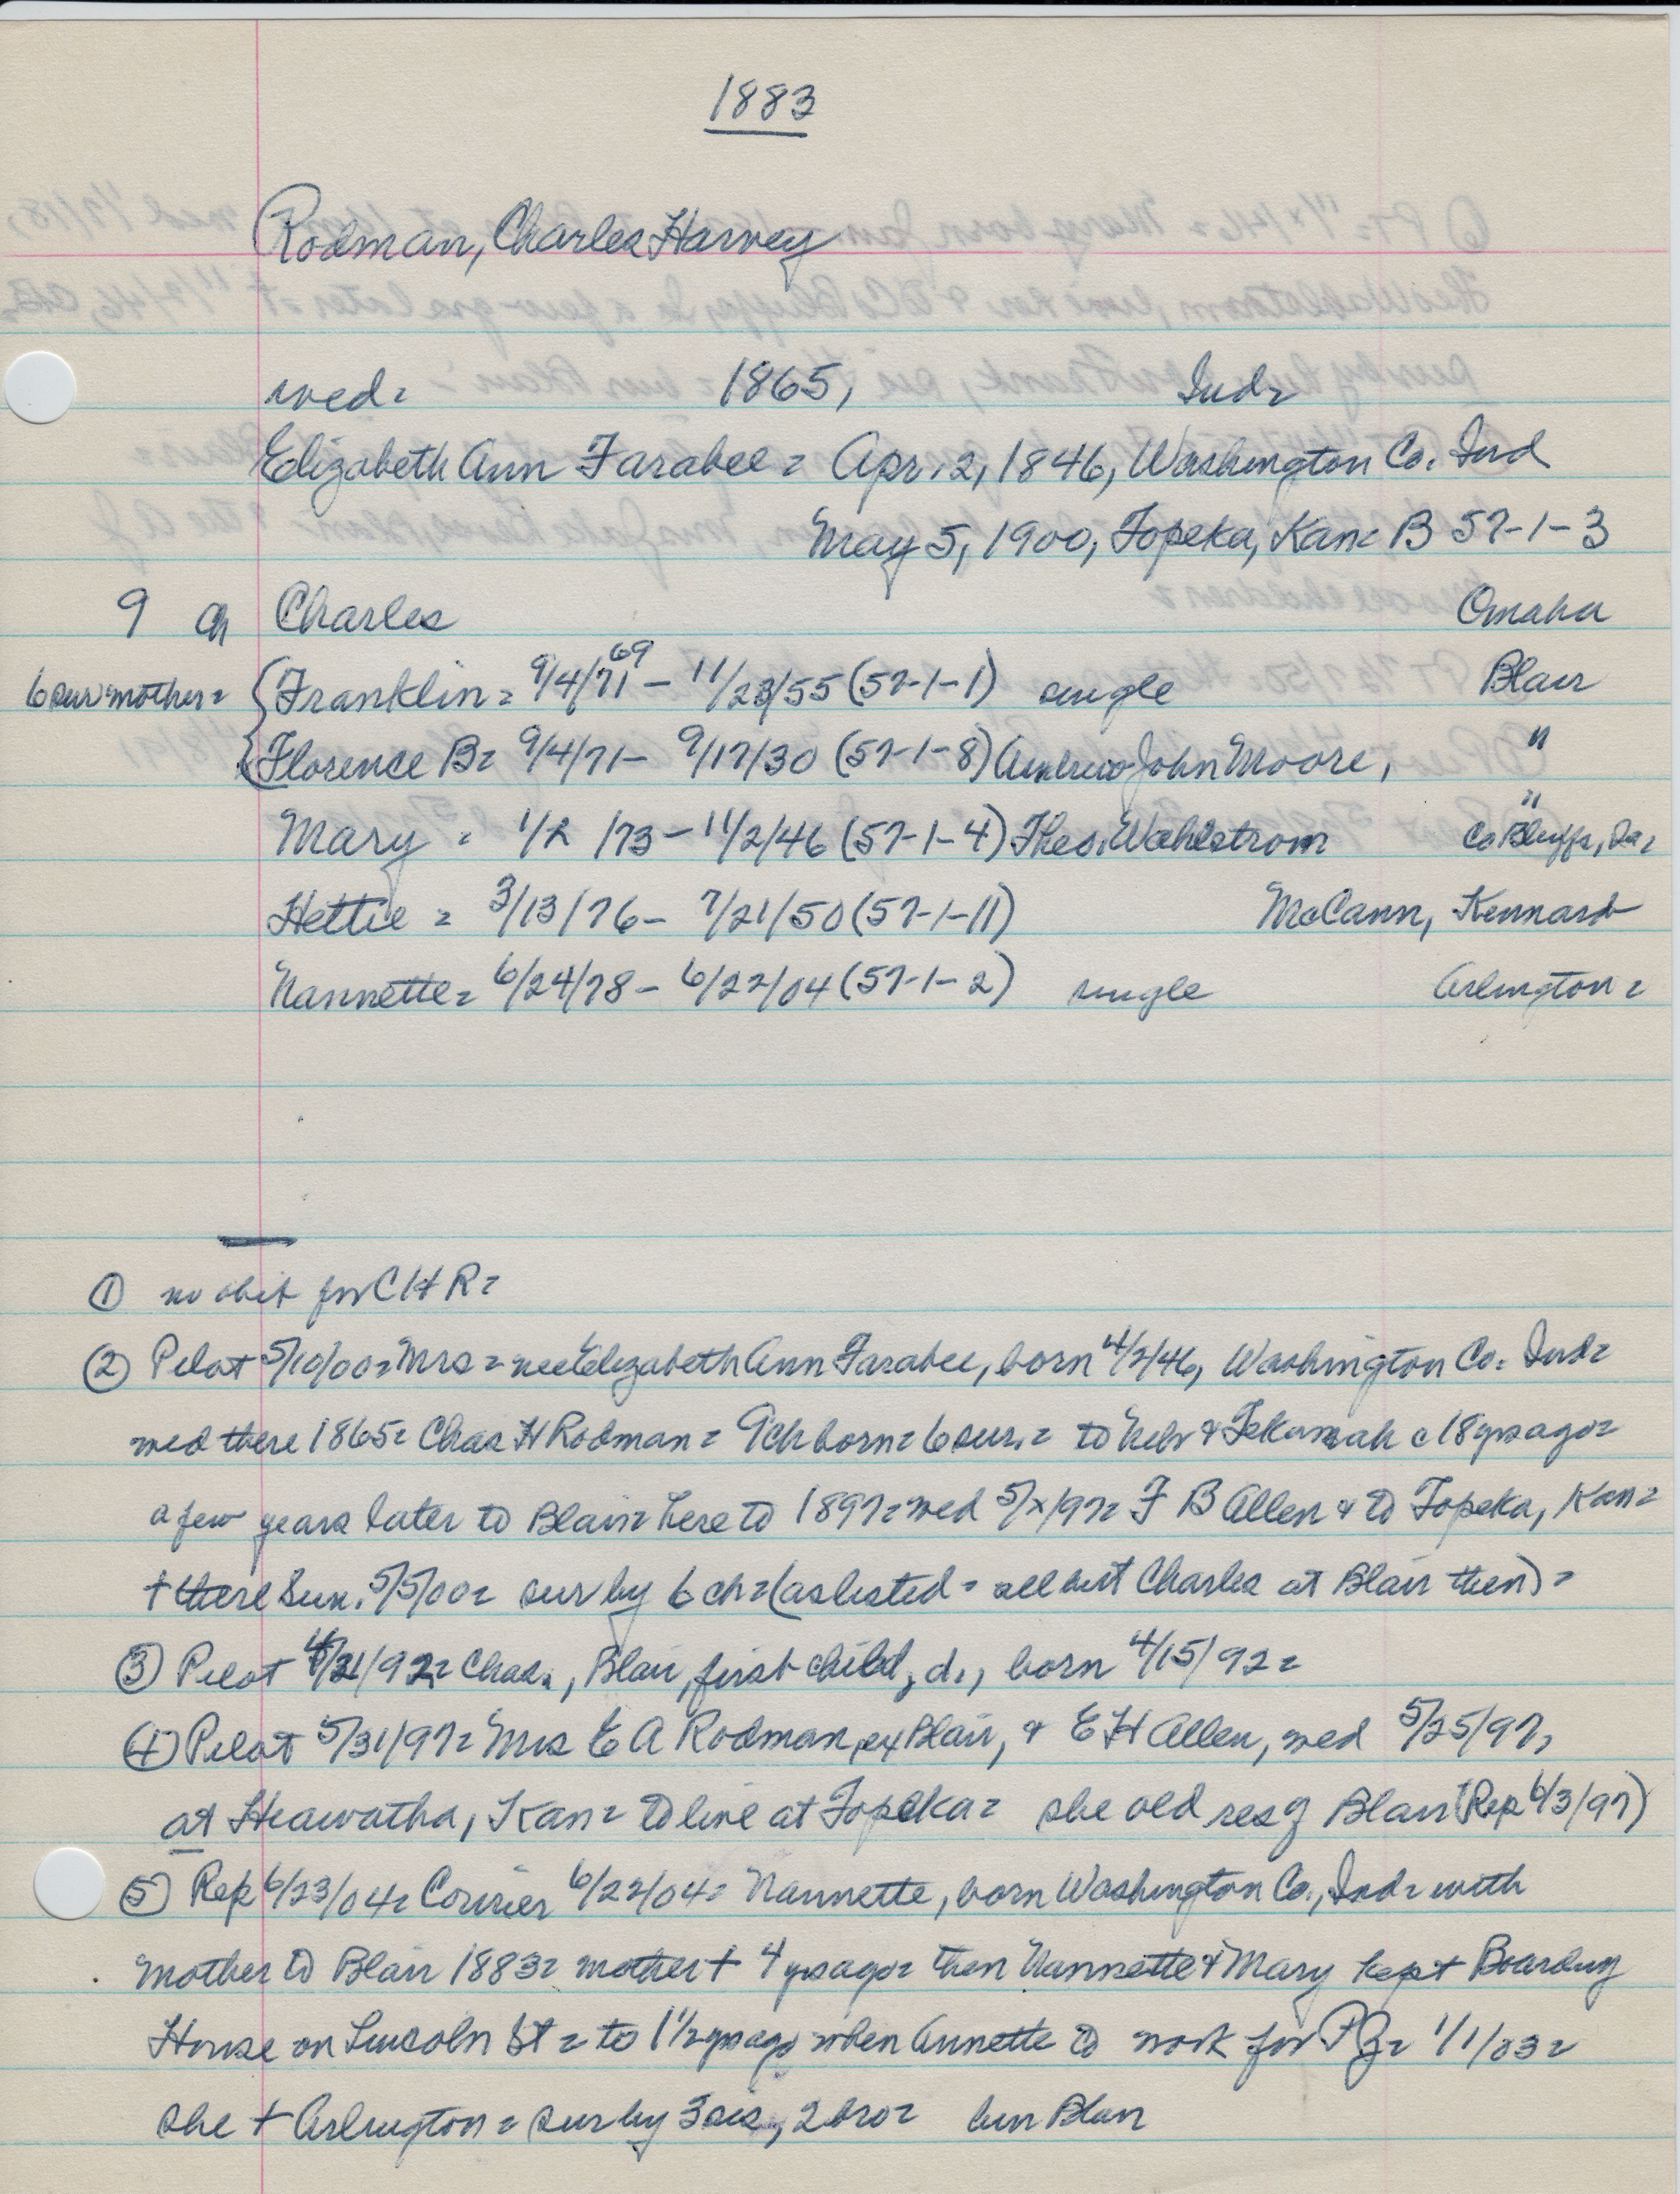 1883
Rodman, Charles Harvey
wed= 1865, Ind=
Elizabeth Ann Farabee = Apr. 2, 1846, Washington Co. Ind
May 5, 1900, Topeka, Kan= B 57-1-3
9 ch Charles Omaha
6 sur mother= Franklin = 9/4/71 69 - 11/23/55 (57-1-1) single Blair
Florence B= 9/4/71 - 9/17/30 (57-1-8) Andrew John Moore, "
Mary = 1/2 /73 - 11/2/46 (57-1-4) Theo. Wahlstrom " Co Bluffs, Ia=
Hettie = 3/13/76 - 7/21/50 (57-1-11) McCann, Kennard
Nannette= 6/24/78 - 6/22/04 (57-1-2) single Arlington =
① no obit for C H R=
② Pilot 5/10/00= Mrs = nee Elizabeth Ann Farabee, born 4/2/46, Washington Co. Ind=
wed there 1865= Chas H Rodman = 9 ch born = 6 sur. = to Neb & Tekamah c 18 yrs ago=
a few years later to Blair= here to 1897= wed 5/x/97= F B Allen & to Topeka, Kan=
† there Sun. 5/5/00= sur by 6 ch= (as listed = all but Charles at Blair then) =
③ Pilot 4/21/92= Chas., Blair, first child, d., born 4/15/92=
④ Pilot 5/31/97= Mrs E A Rodman, ex Blair, & E H Allen, wed 5/25/97,
at Heawatha, Kan= to live at Topeka= she old res of Blair (Rep 6/3/97)
⑤ Rep 6/23/04= Courier 6/22/04= Nannette, born Washington Co., Ind= with
mother to Blair 1883= mother † 4 yrs ago= then Nannette & Mary kept Boarding
House on Lincoln St = to 1 1/2 yrs ago when Annette to work for 1/1/03=
she † Arlington = sur by 3 sis, 2 bro= bur Blair